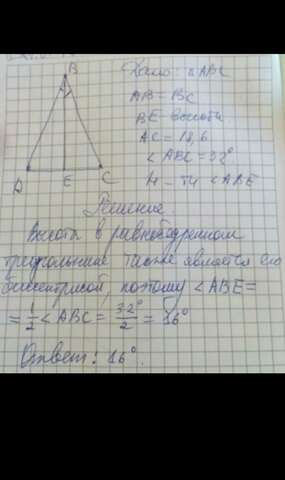 B
D
E
C
Дано: △ABC
AB = BC
BE высота
AC = 18,6
∠ABC = 32°
∠ABE
Решение
Высота в равнобедренном
треугольнике также является его
биссектрисой, поэтому ∠ABE =
= 1/2 ∠ABC = 32°/2 = 16°
Ответ: 16°.